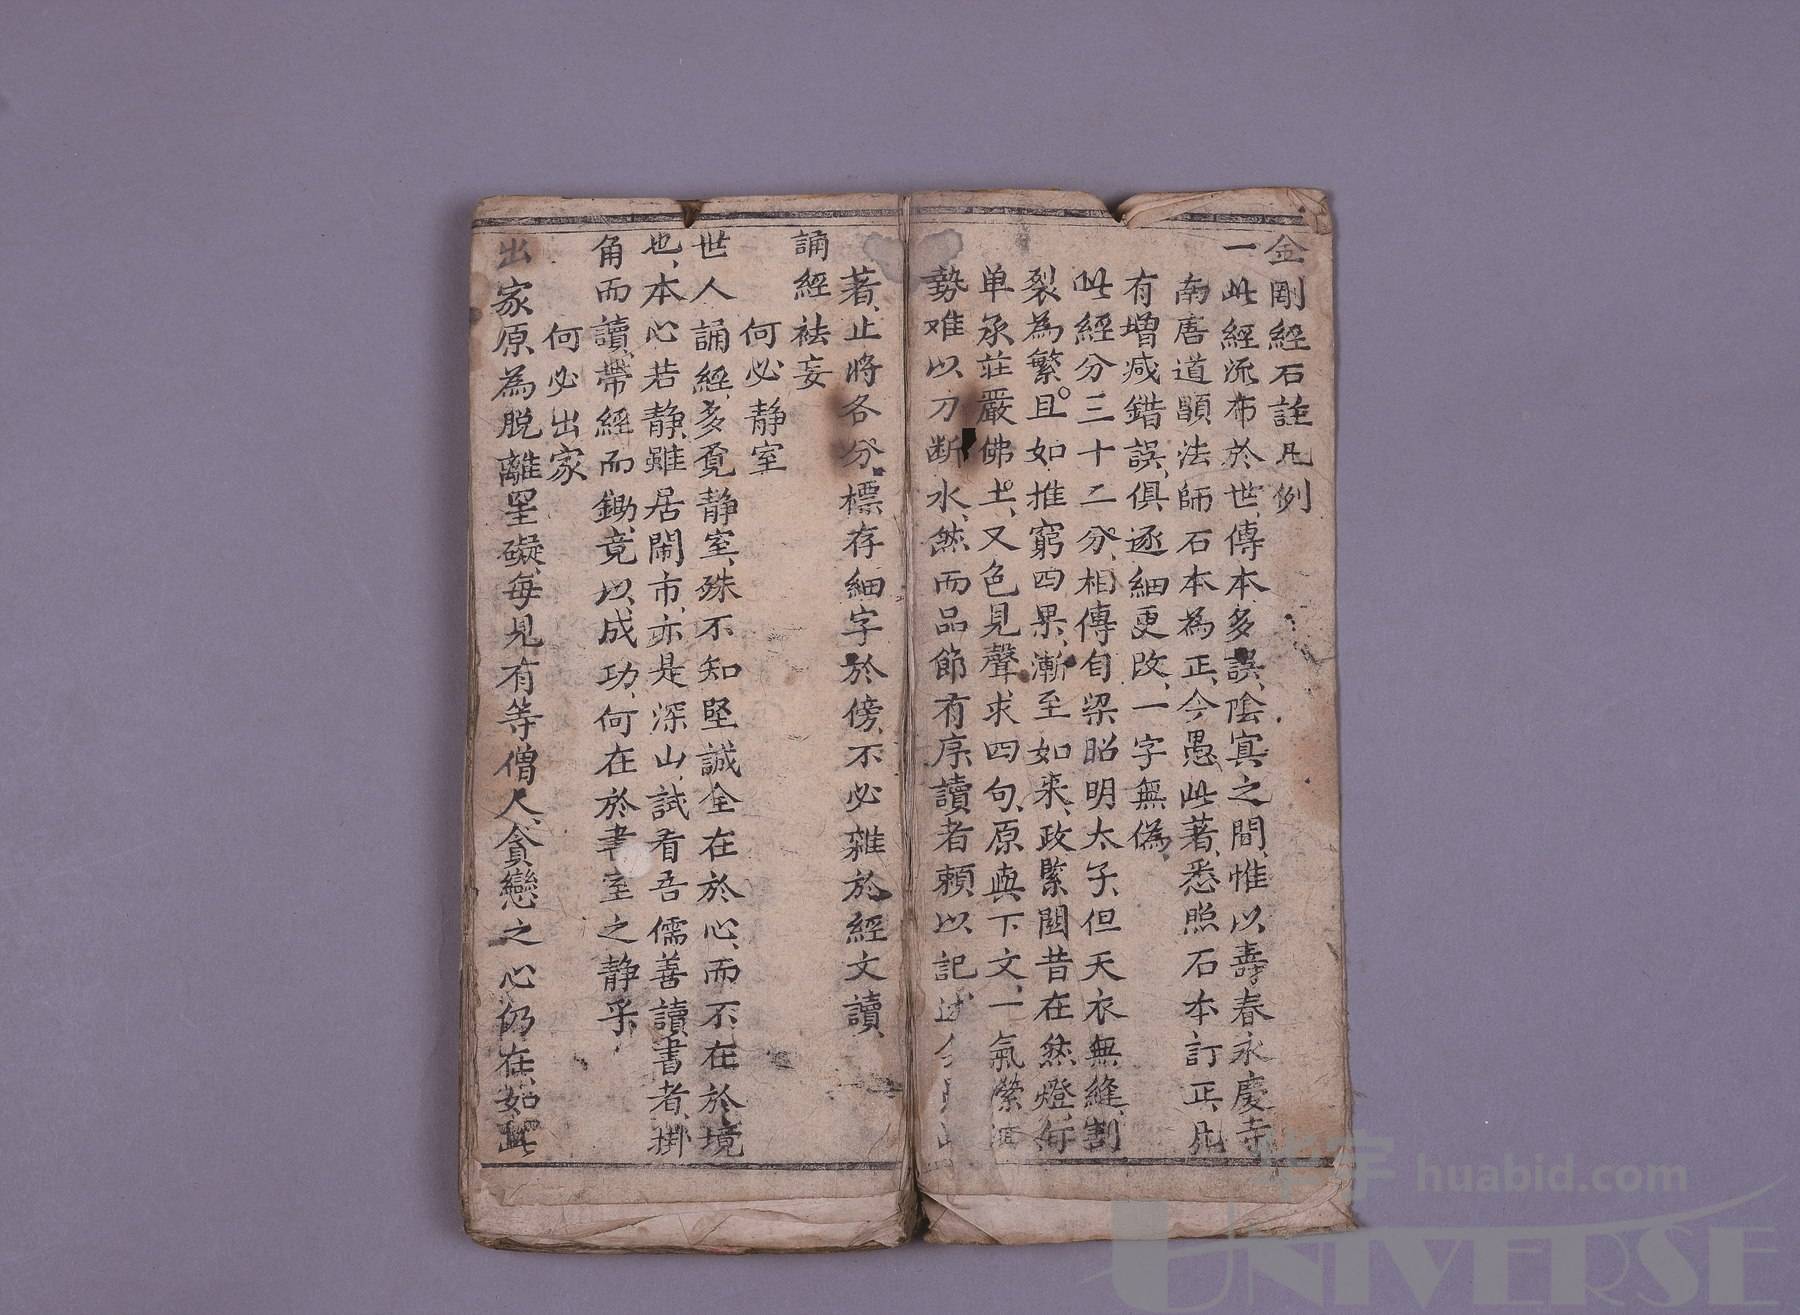 金剛經石註凡例
一此經流布於世、傳本多誤、陰冥之間、惟以壽春永慶寺
南唐道顒法師石本為正、今愚此著、悉照石本訂正、凡
有增减錯誤、俱逐細更改、一字無偽、
此經分三十二分、相傳自梁昭明太子、但天衣無縫、割
裂為繁。且如推窮四果、漸至如来、政緊關昔在然燈、何
单承莊嚴佛土、又色見聲求四句、原與下文、一氣縈
勢难以刀断水、然而品節有序、讀者頼以記述
著、止將各分、標存細字於傍、不必雜於經文讀、
誦經袪妄
何必静室
世人誦經、多覔静室、殊不知堅誠全在於心、而不在於境
也、本心若静、雖居閙市、亦是深山、試看吾儒善讀書者、掛
角而讀、帶經而鋤、竟以成功、何在於書室之静乎、
何必出家
出家原為脱離罣礙、每見有等僧人、貪戀之心仍在、如此
华宇 huabid.com
UNIVERSE